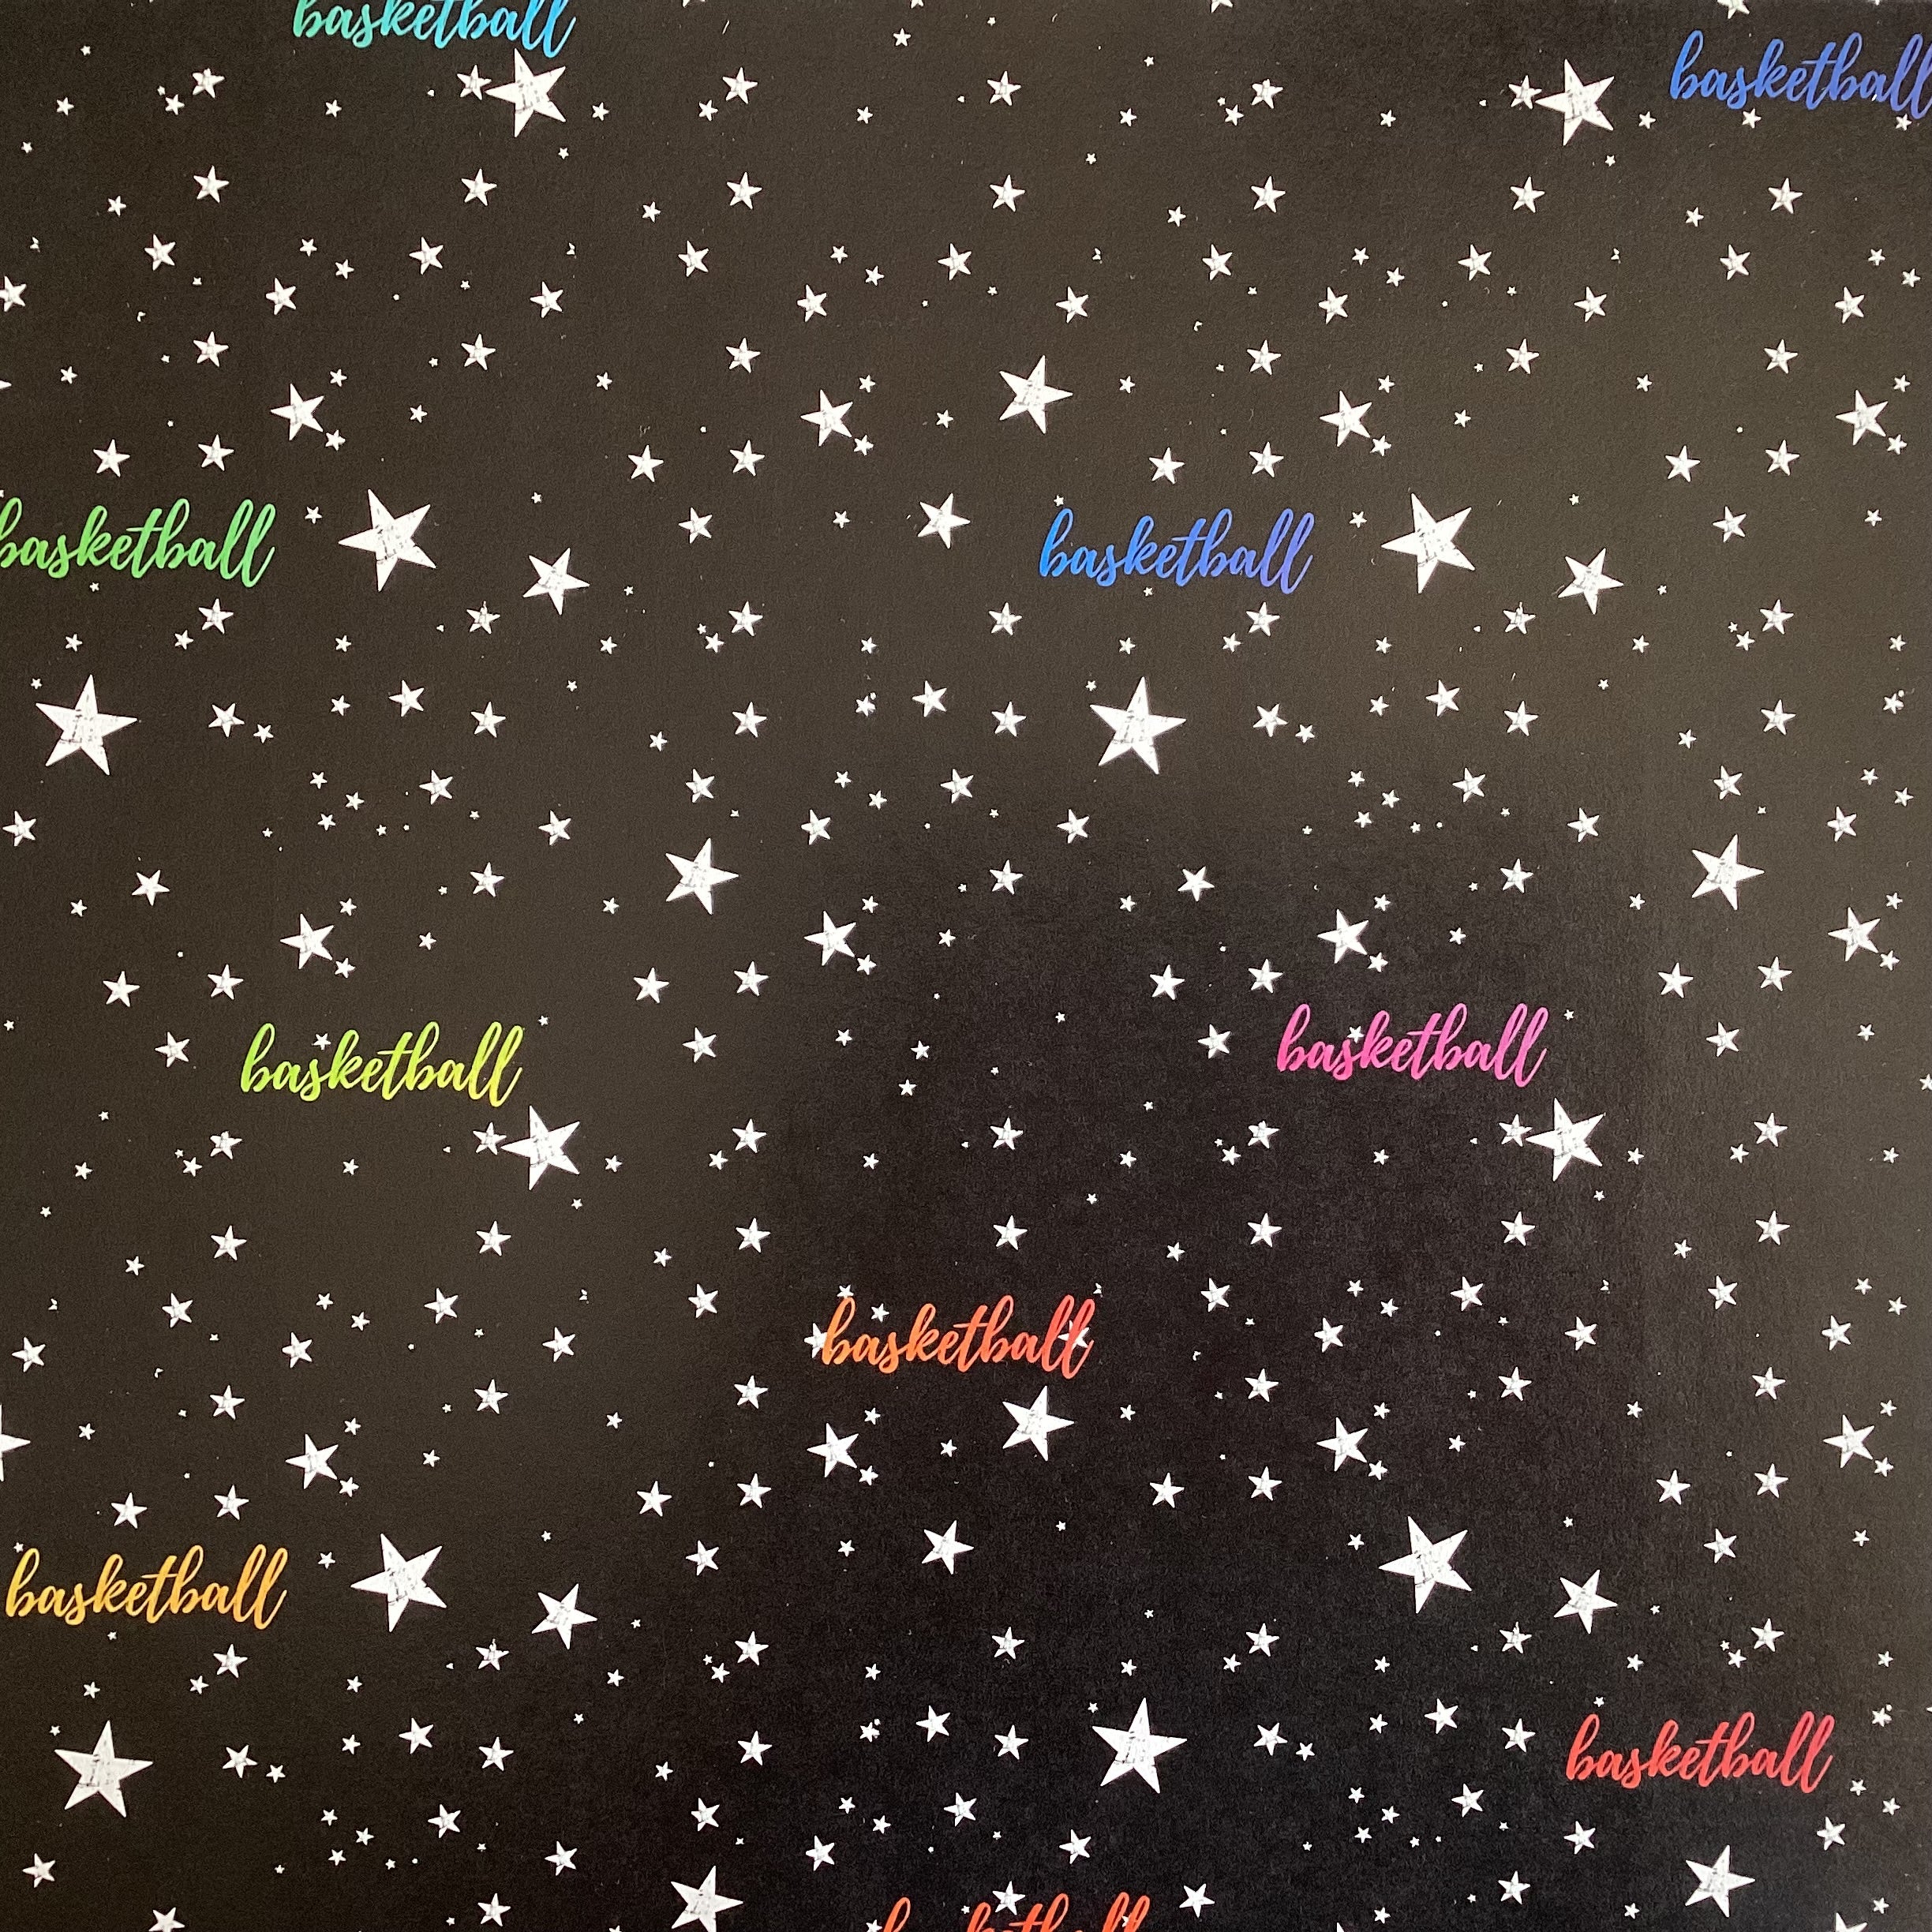 basketball
basketball
basketball
basketball
basketball
basketball
basketball
basketball
basketball
basketball